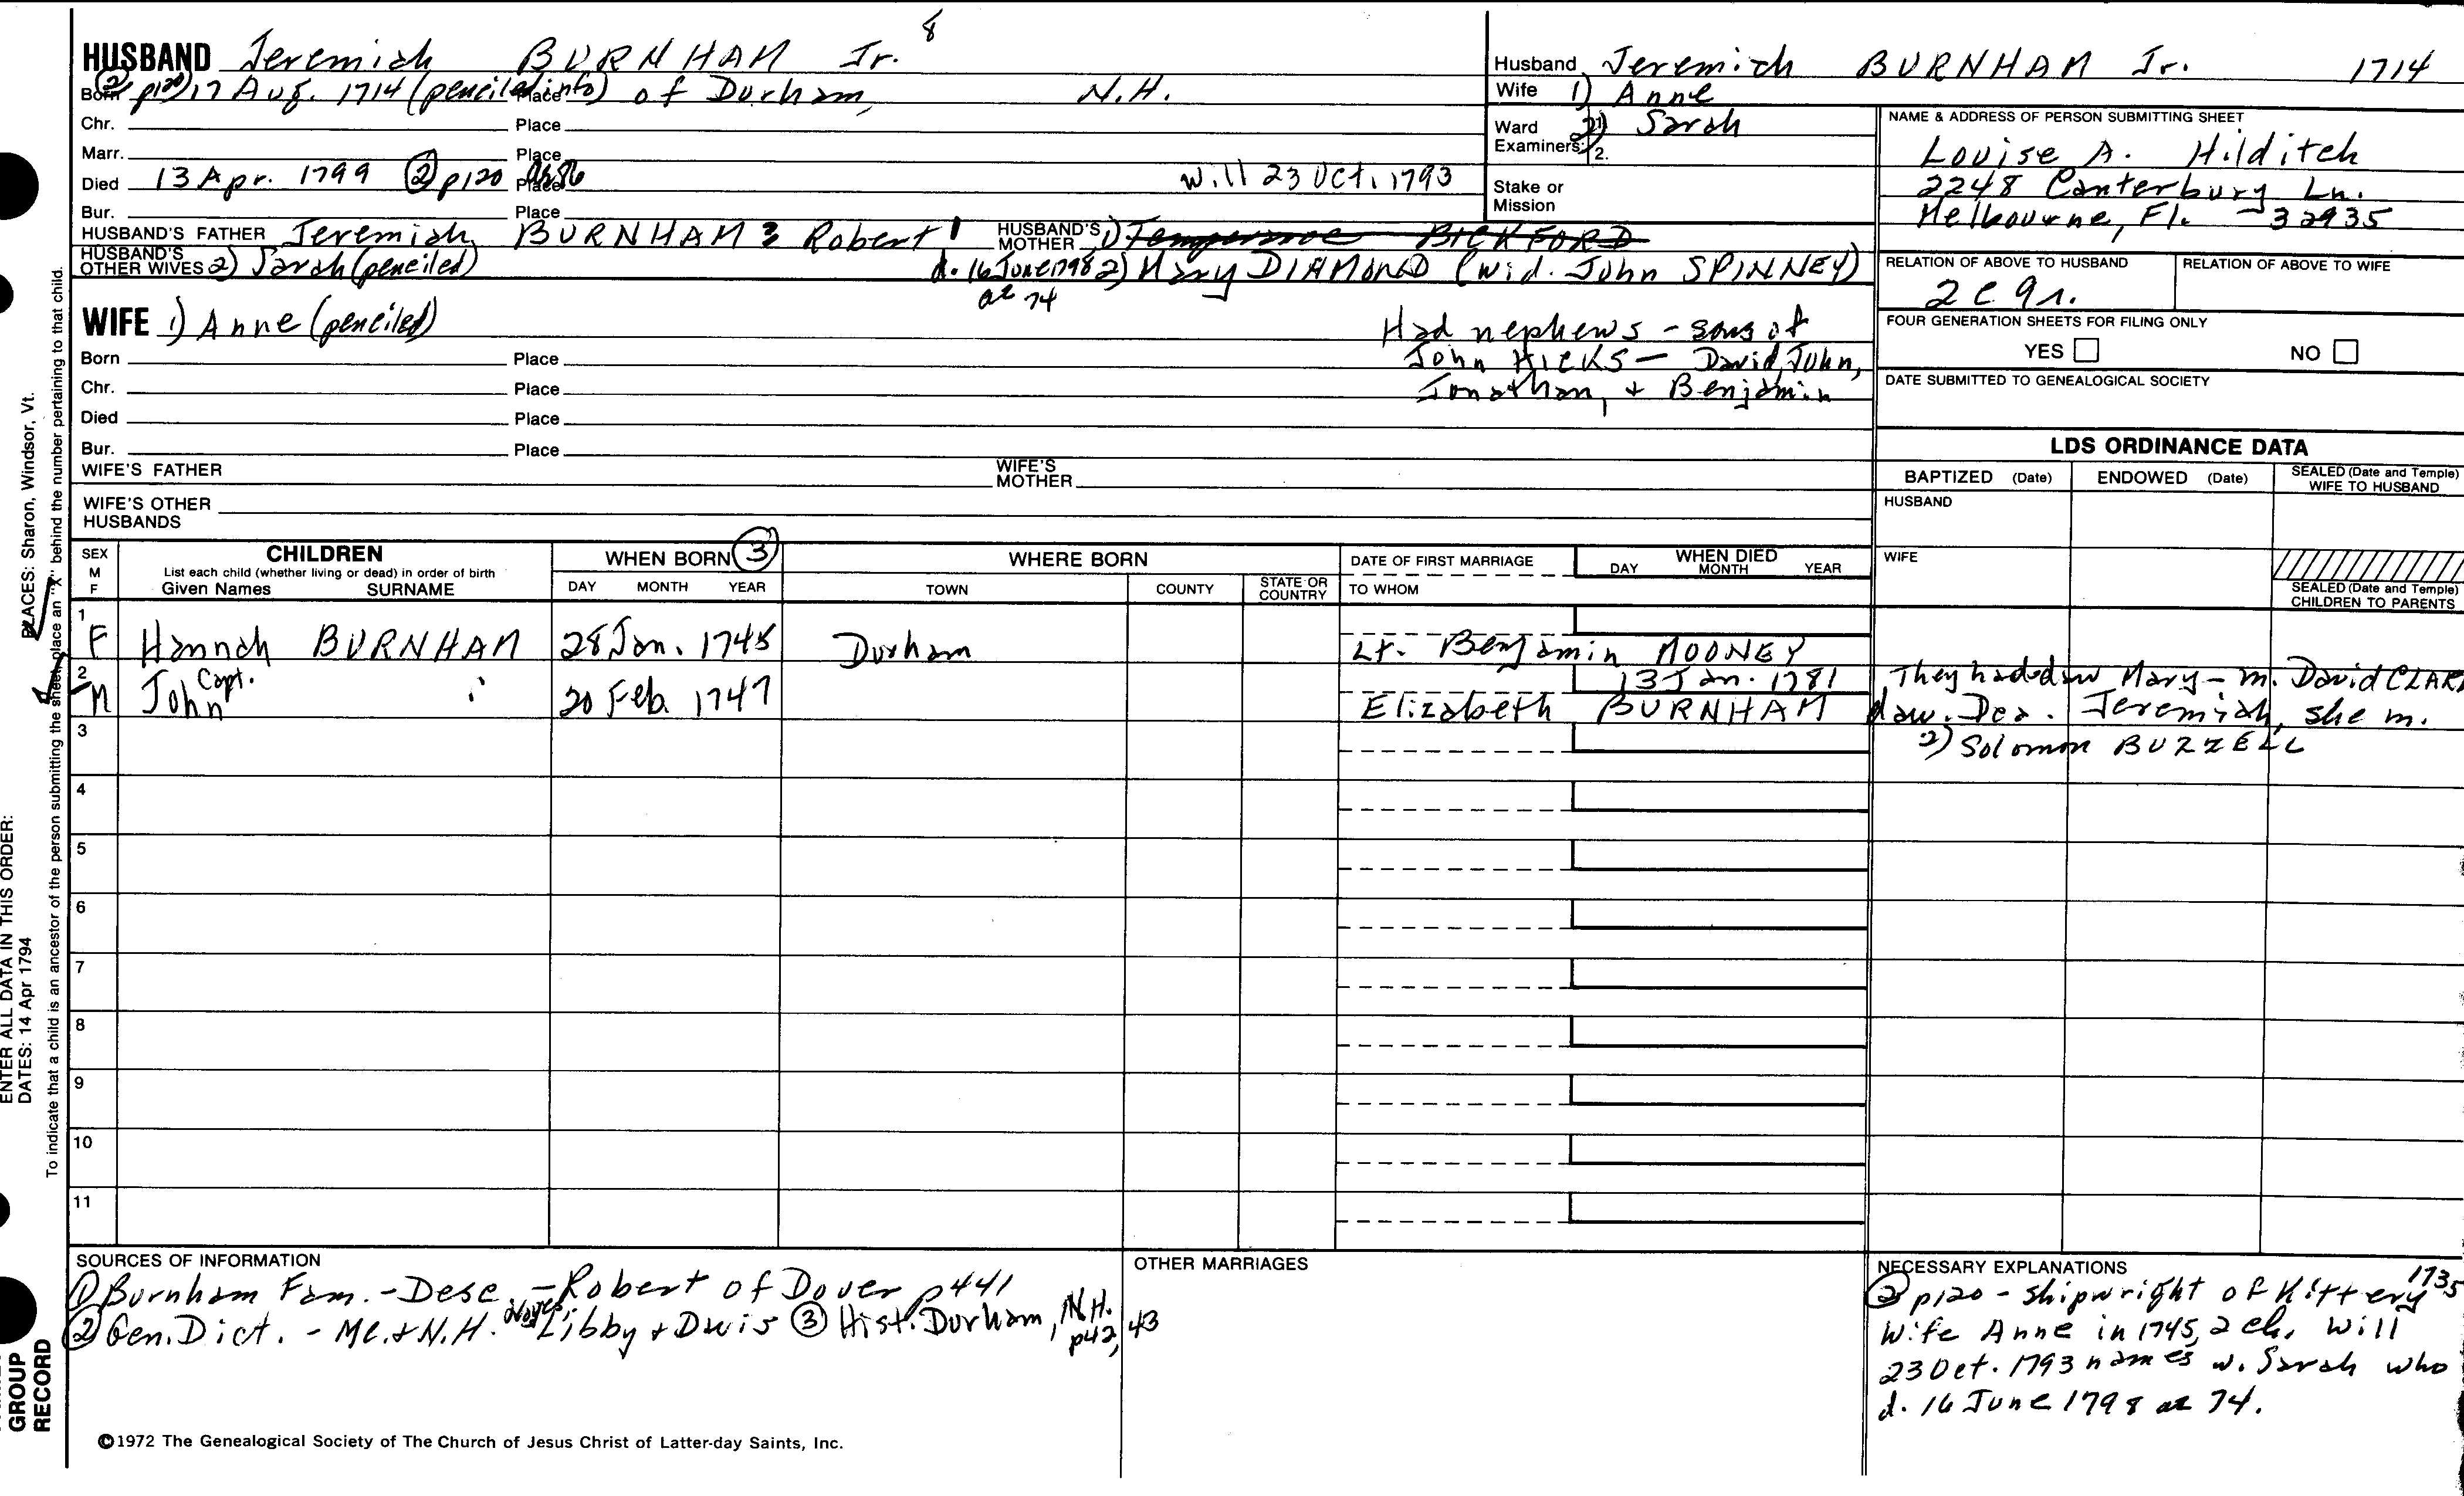 HUSBAND Jeremiah BURNHAM Jr. 8
Born ② p120) 17 Aug. 1714 (penciled info) Place of Durham, N.H.
Chr. Place
Marr. Place
Died 13 Apr. 1799 ② p120 Place ae 86 Will 23 Oct. 1793
Bur. Place
HUSBAND'S FATHER Jeremiah BURNHAM 3 Robert 1 HUSBAND'S MOTHER 1) Temperance BICKFORD
HUSBAND'S OTHER WIVES 2) Sarah (penciled) d. 16 June 1798 2) Mary DIAMOND (wid. John SPINNEY)
ae 74
WIFE 1) Anne (penciled)
Had nephews - sons of
John HICKS - David, John,
Jonathan, + Benjamin
Born Place
Chr. Place
Died Place
Bur. Place
WIFE'S FATHER WIFE'S MOTHER
WIFE'S OTHER HUSBANDS
Husband Jeremiah BURNHAM Jr. 1714
Wife 1) Anne
Ward 2) Sarah
Examiners: 1. 2.
Stake or Mission
NAME & ADDRESS OF PERSON SUBMITTING SHEET
Louise A. Hilditch
2248 Canterbury Ln.
Melbourne, Fl. - 32935
RELATION OF ABOVE TO HUSBAND RELATION OF ABOVE TO WIFE
2c 9r.
FOUR GENERATION SHEETS FOR FILING ONLY
YES NO
DATE SUBMITTED TO GENEALOGICAL SOCIETY
LDS ORDINANCE DATA
BAPTIZED (Date) ENDOWED (Date) SEALED (Date and Temple) WIFE TO HUSBAND
HUSBAND
WIFE
SEALED (Date and Temple) CHILDREN TO PARENTS
SEX M F
CHILDREN
List each child (whether living or dead) in order of birth
Given Names SURNAME
WHEN BORN ③
DAY MONTH YEAR
WHERE BORN
TOWN COUNTY STATE OR COUNTRY
DATE OF FIRST MARRIAGE
TO WHOM
WHEN DIED
DAY MONTH YEAR
1 F Hannah BURNHAM 28 Jan. 1745 Durham Lt. Benjamin MOONEY
They had daw Mary - m. David CLARK
2 M John Capt. " 20 Feb. 1747 13 Jan. 1781 Elizabeth BURNHAM daw. Dea. Jeremiah, she m.
2) Solomon BUZZELL
3
4
5
6
7
8
9
10
11
SOURCES OF INFORMATION
① Burnham Fam. - Desc. - Robert of Dover p441
② Gen. Dict. - Me. + N.H. Noyes Libby + Davis ③ Hist. Durham, N.H. p42, 43
OTHER MARRIAGES
NECESSARY EXPLANATIONS
② p120 - shipwright of Kittery 1735
Wife Anne in 1745, 2 ch. Will
23 Oct. 1793 names w. Sarah who
d. 16 June 1798 ae 74.
©1972 The Genealogical Society of The Church of Jesus Christ of Latter-day Saints, Inc.
GROUP
RECORD
ENTER ALL DATA IN THIS ORDER:
DATES: 14 Apr 1794
PLACES: Sharon, Windsor, Vt.
To indicate that a child is an ancestor of the person submitting the sheet, place an "X" behind the number pertaining to that child.